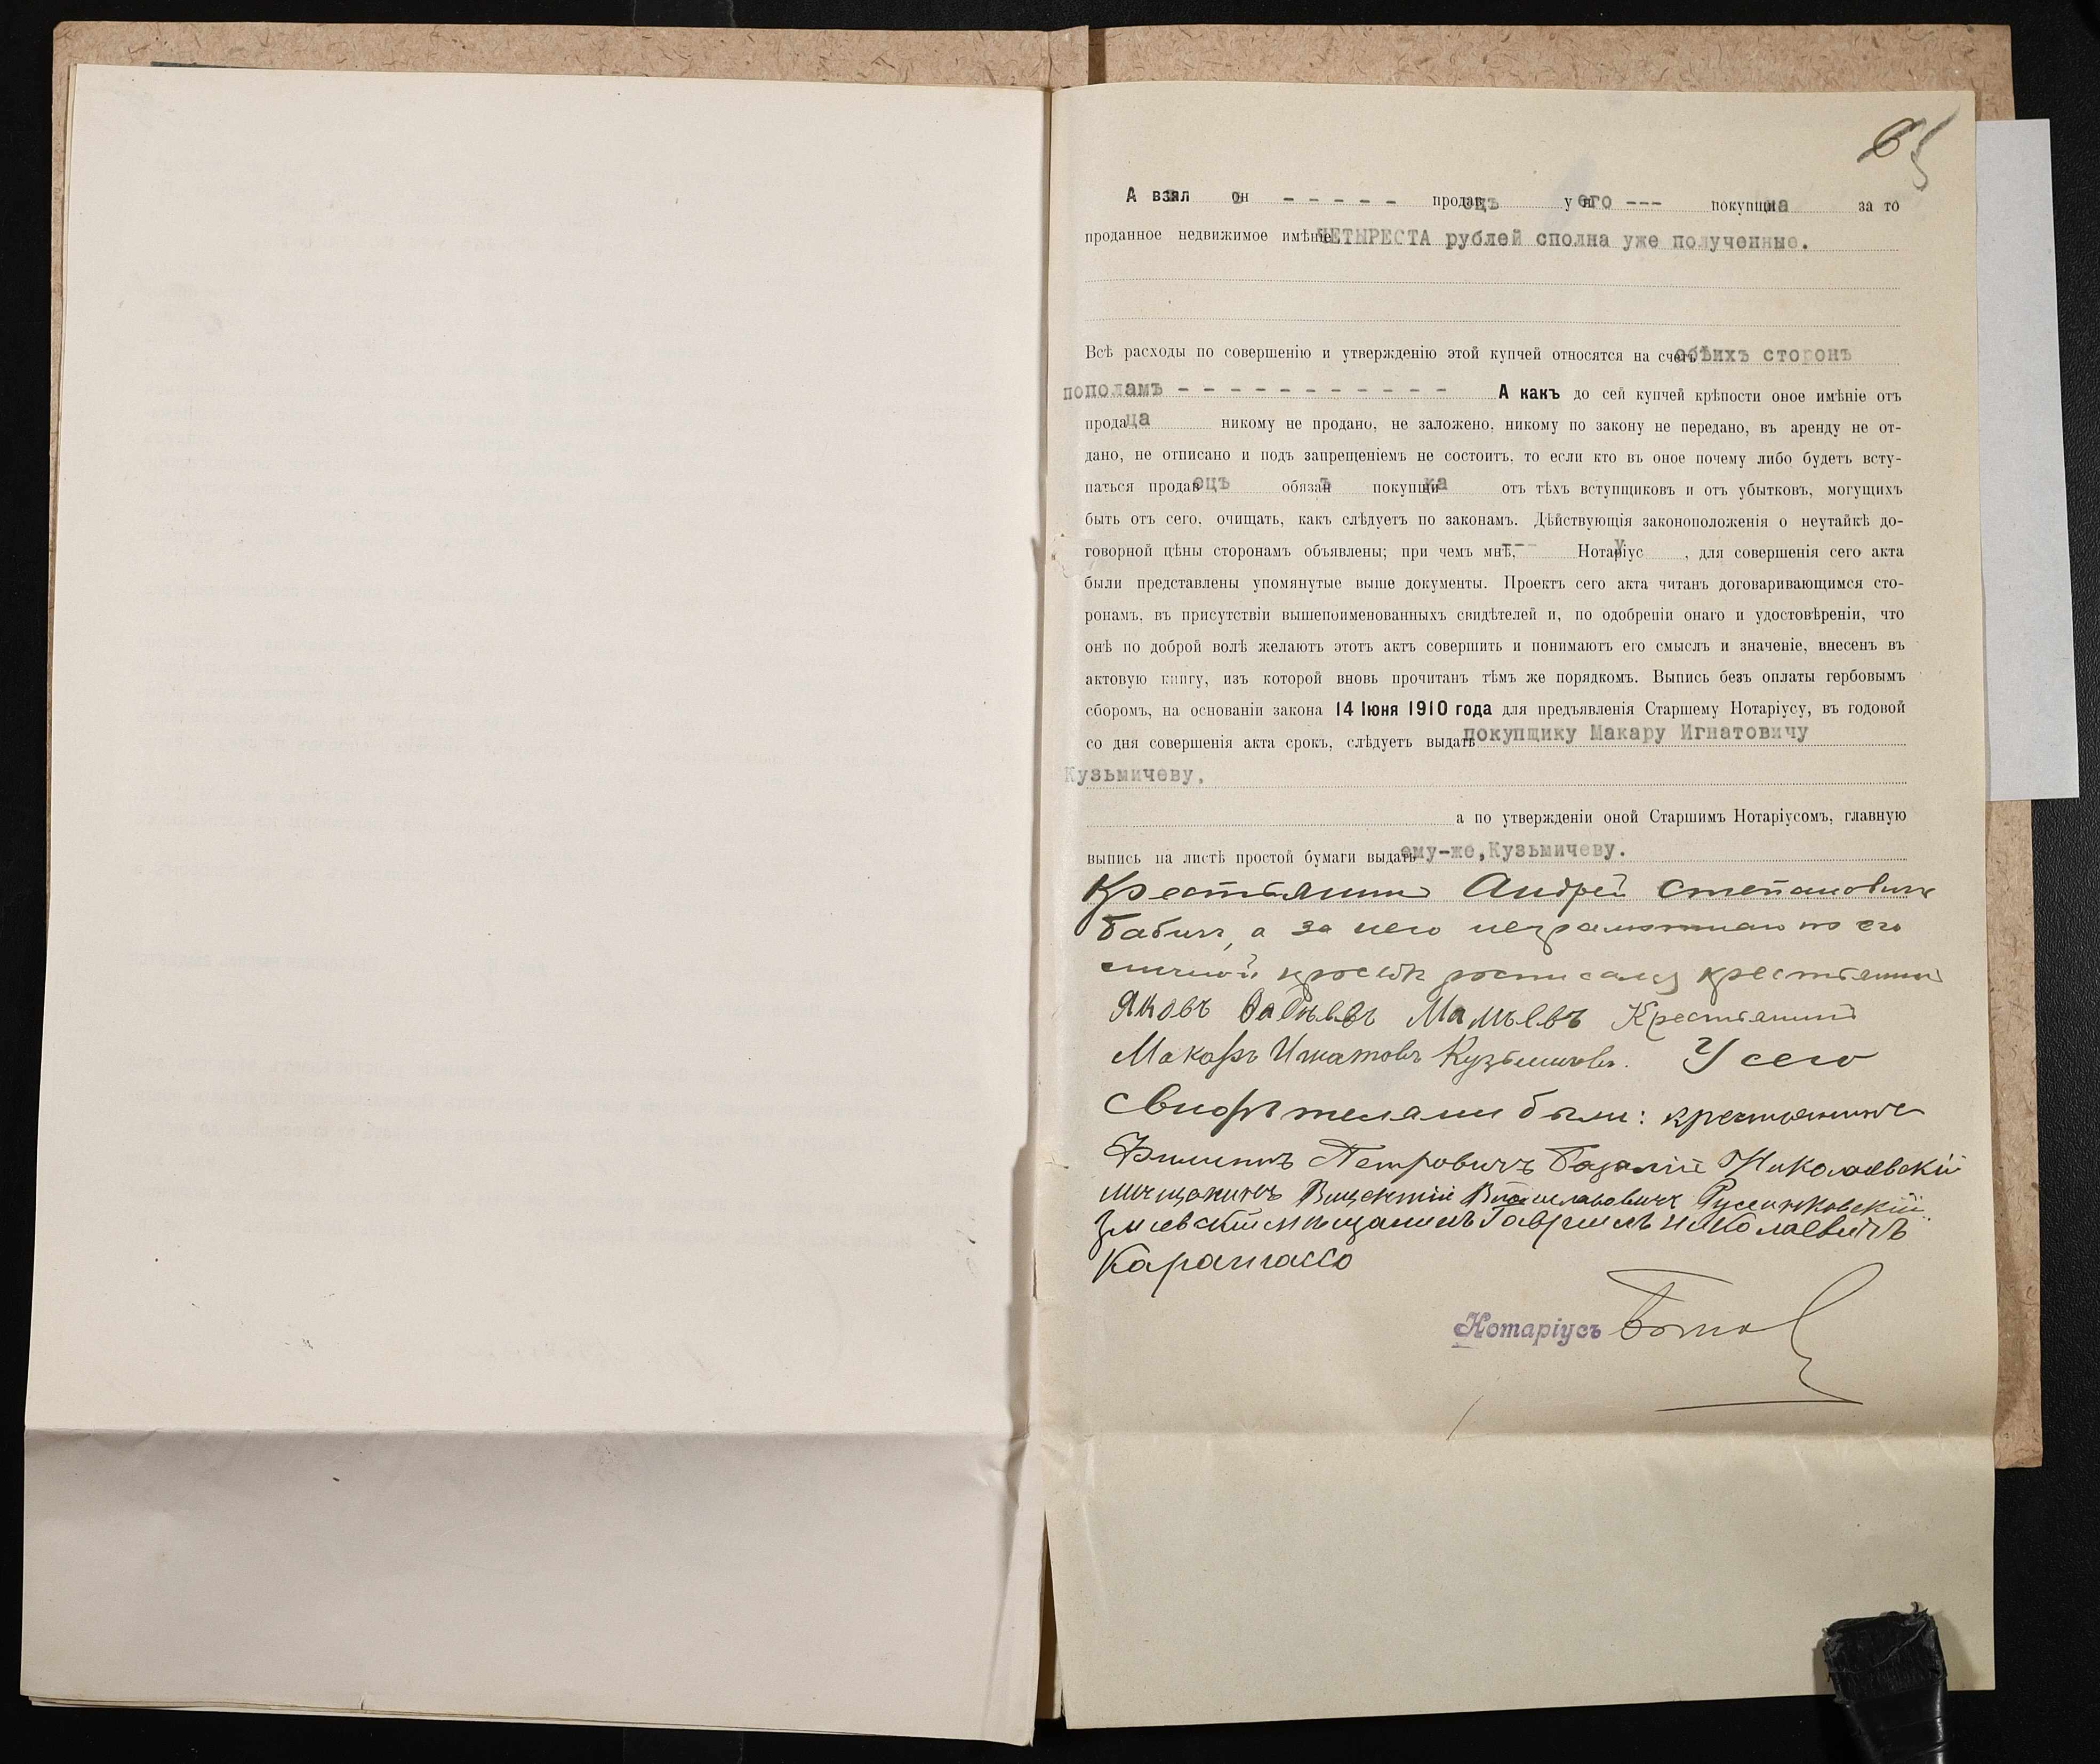 65
А взялъ онъ - - - - - продавецъ у него --- покупщика за то
проданное недвижимое имѣніе ЧЕТЫРЕСТА рублей сполна уже полученные.
Всѣ расходы по совершенію и утвержденію этой купчей относятся на счетъ обѣихъ сторонъ
пополамъ - - - - - - - - - - - А какъ до сей купчей крѣпости оное имѣніе отъ
продавца никому не продано, не заложено, никому по закону не передано, въ аренду не от-
дано, не отписано и подъ запрещеніемъ не состоитъ, то если кто въ оное почему либо будетъ всту-
паться продавецъ обязанъ покупщика отъ тѣхъ вступщиковъ и отъ убытковъ, могущихъ
быть отъ сего, очищать, какъ слѣдуетъ по законамъ. Дѣйствующія законоположенія о неутайкѣ до-
говорной цѣны сторонамъ объявлены; при чемъ мнѣ, --- Нотаріусу, для совершенія сего акта
были представлены упомянутые выше документы. Проектъ сего акта читанъ договаривающимся сто-
ронамъ, въ присутствіи вышепоименованныхъ свидѣтелей и, по одобреніи онаго и удостовѣреніи, что
онѣ по доброй волѣ желаютъ этотъ актъ совершить и понимаютъ его смыслъ и значеніе, внесенъ въ
актовую книгу, изъ которой вновь прочитанъ тѣмъ же порядкомъ. Выпись безъ оплаты гербовымъ
сборомъ, на основаніи закона 14 Іюня 1910 года для предъявленія Старшему Нотаріусу, въ годовой
со дня совершенія акта срокъ, слѣдуетъ выдать покупщику Макару Игнатовичу
Кузьмичеву,
а по утвержденіи оной Старшимъ Нотаріусомъ, главную
выпись на листѣ простой бумаги выдать ему-же,Кузьмичеву.
Крестьянинъ Андрей Степановичъ
Бабичъ, а за него неграмотнаго по его
личной просьбѣ росписался крестьянинъ
Яковъ Мамъевъ Крестьянинъ
Макаръ Игнатовъ Кузьмичовъ. У сего
свидѣтелями были: крестьянинъ
Филиппъ Петровичъ Базалій Николаевскій
мѣщанинъ Викентій Русинковскій
Зміевскій мѣщанинъ Гавріилъ Николаевичъ
Карангассо
Нотаріусъ